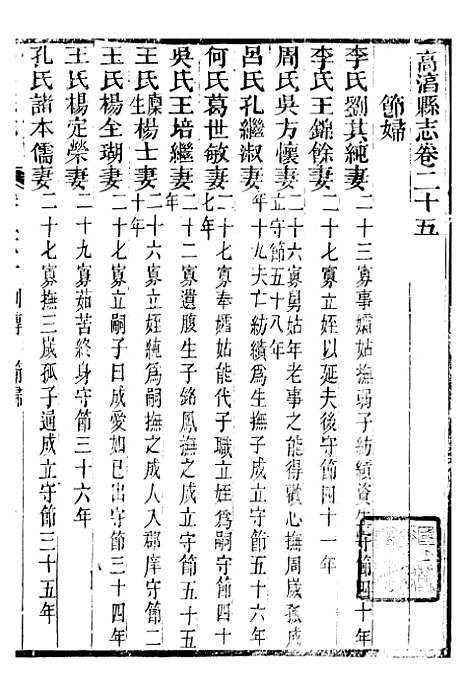 高淳縣志卷二十五
節婦
李氏劉其純妻二十三寡事孀姑撫弱子紡績資生守節四十年
李氏王錦餘妻二十七寡立姪以延夫後守節四十一年
周氏吳方懷妻二十六寡舅姑年老事之能得歡心撫周歲孤成
立守節五十八年
呂氏孔繼淑妻年十九夫亡紡績爲生撫子成立守節五十六年
何氏葛世敏妻二十七寡奉孀姑能代子職立姪爲嗣守節四十
七年
吳氏王培繼妻二十二寡遺腹生子銘鳳撫之成立守節五十五
年
王氏廩生楊士妻二十六寡立姪純爲嗣撫之成人入郡庠守節二
十年
王氏楊全瑚妻年二十八寡立嗣子曰成愛如已出守節三十四年
王氏楊定榮妻二十九寡茹苦終身守節三十六年
孔氏諸本儒妻二十七寡撫三歲孤子通成立守節三十五年
列傳 節婦